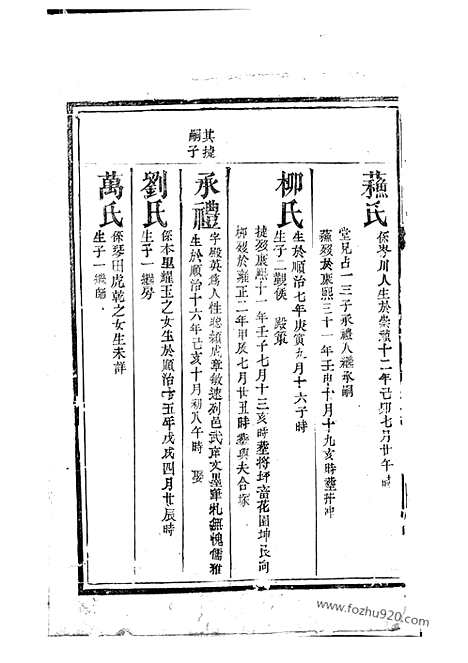 蘓氏
係琴川人生於崇禎十二年己卯七月廿午時
堂兄占一三子承禮入繼承嗣
蘓歿於康熙三十一年壬申十月十九亥時塟茾冲
柳氏
生於順治七年庚寅九月十六子時
生子二觀侯 殿策
捷歿康熙十一年壬子七月十三亥時塟將坪畲花園坤艮向
柳歿於雍正二年甲辰七月廿五時塟與夫合塚
其捷
嗣子
承禮
字殿英為人性聰穎成章敏速列邑武庠文墨筆札無愧儒雅
生於順治十六年己亥十月初八午時 娶
劉氏
係本里耀玉之女生於順治十五年戊戌四月廿辰時
生子一繼房
萬氏
係琴田虎乾之女生未詳
生子一繼師
www.fozhu920.com